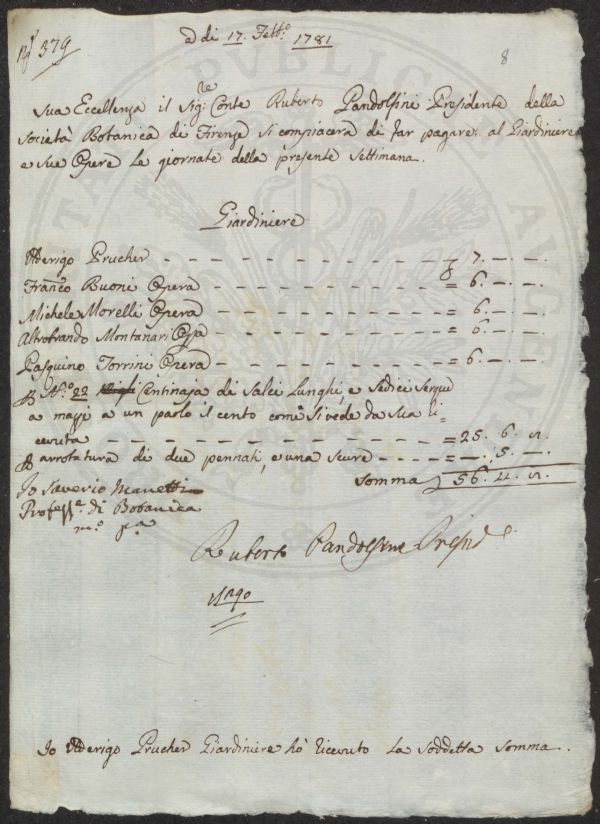 a di 17. Febb.º 1781
379
8
Sua Eccellenza il Sig:re Conte Ruberto Pandolfini Presidente della
Società Botanica di Firenze si compiacerà di far pagare al Giardiniere
e sue Opere le giornate della presente Settimana.
Giardiniere
Prucher - - - 7. —. —.
Franc.º Buoni Opera - - - = 6. —. —.
Michele Morelli Opera - - - = 6. —. —.
Montanari Opa - - - = 6. —. —.
Pasquino Torrini Opera - - - = 6. —. —.
N.º 22 Centinaja di Salci Lunghi, e Sedici Serque
a mazzi a un paolo il cento come si vede da sua ri=
cevuta - - - = 25. 6.
arrotatura di due pennati, e una scure - - - = —. 5. —.
Somma 56. 4.
Io Saverio Manetti
Profess.e di Botanica
m.º p.a
Ruberto Pandolfini Presid.e
Io Prucher Giardiniere hò ricevuto la Soddetta Somma.
PVBLICAE